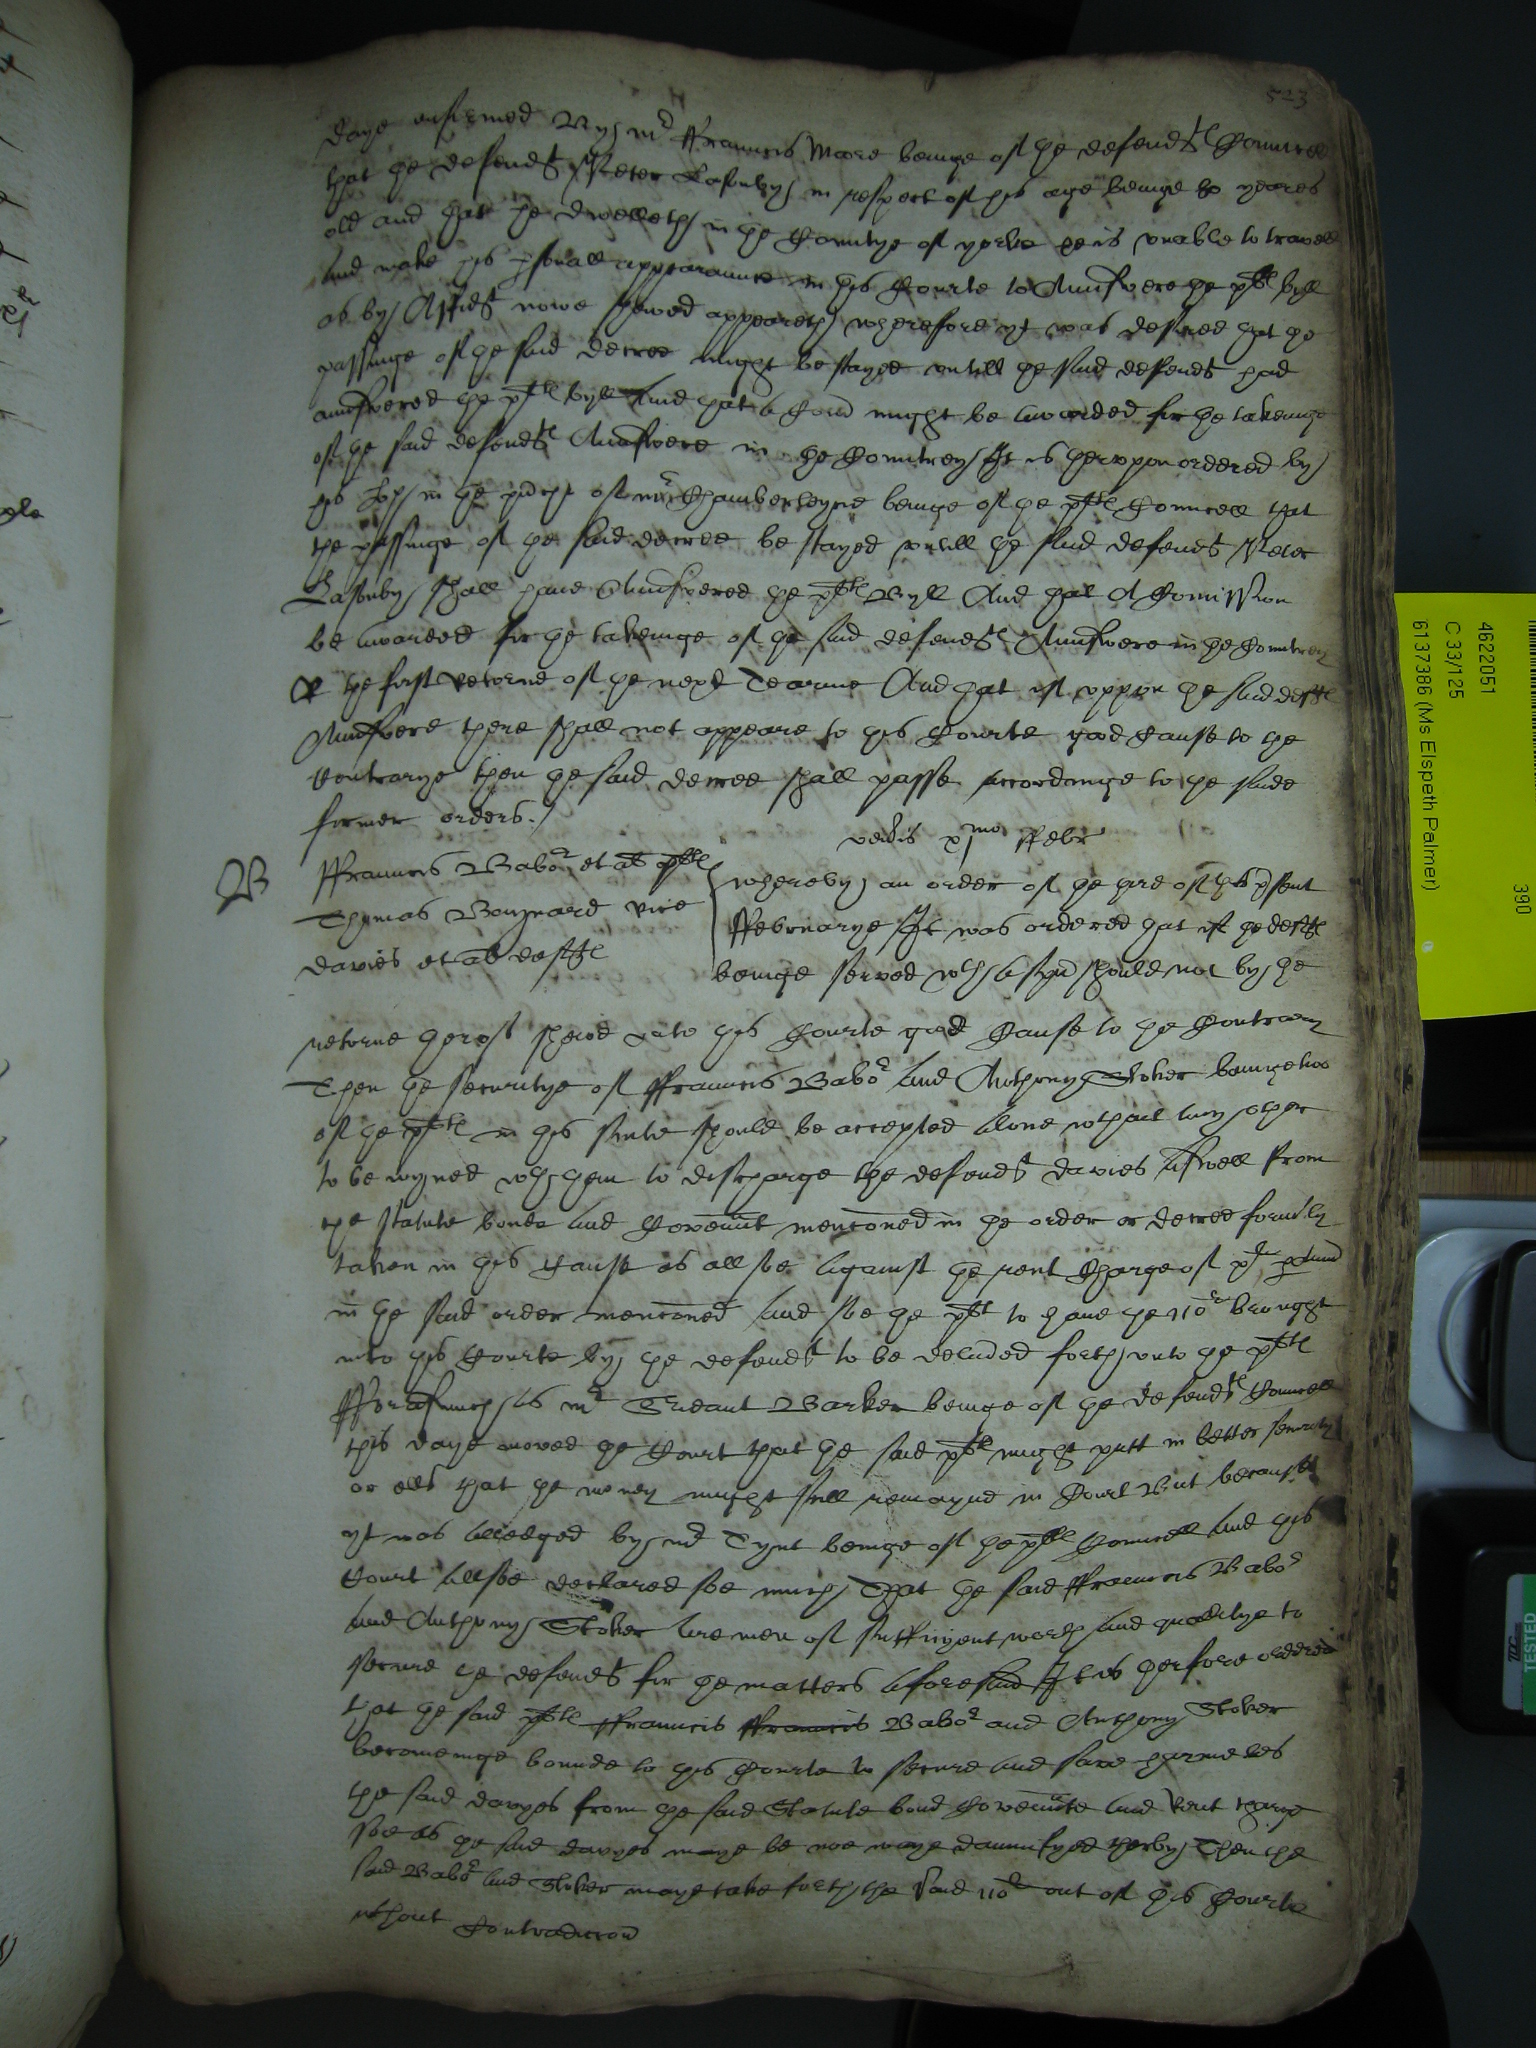 523
daye enformed by mr ffrauncis Moore beinge of the defendtes Councell
that the defendt Peter Lasenby in respect of his age beinge 80 yeares
old and that he dwelleth in the Countye of yorke he is vnable to travell
And make his psonall appearaunce in this Courte to Aunswere the pltes byll
as by Affidt nowe shewed appeareth wherefore yt was desired that the
passinge of the said decree might be stayed vntill the said defendt had
aunswered the pltes byll And that a Comn might be awarded for the takeinge
of the said defendtes Aunswere in the Countrey It is thervppon ordered by
this Cort in the pnce of mr Chamberleyne beinge of the pltes Councell that
the passinge of the said decree be stayed vntill the said defendt Peter
Lasenby shall haue Aunswered the pltes Byll And that A Comission
be awarded for the takeinge of the said defendtes Aunswere in the Countrey
the first Retorne of the next Tearme And that if vppon the said deftes
Aunswere there shall not appeare to this Courte good Cause to the
Contrarye then the said decree shall passe accordinge to the saide
former orders
ffebr
B
ffrauncis Baber et al pltes
Thomas Bouynard vice
Davies et al deftes
whereby an order of the third of this psent
ffebruarye It was ordered that if the deftes
beinge served wth a spn should not by the
retorne therof shewe vnto this Courte good Cause to the Contrary
Then the securitye of ffrauncis Baber And Anthony Stoker beinge two
of the pltes in this suite should be accepted alone without any other
to be ioyned wth them to discharge the defendt Davies Aswell from
the Statute bonde And Covennt mencioned in the order or decree formerly
taken in this Cause as allsoe against the rent Charge of
in the said order mencioned And soe the plt to haue the 110li brought
into this Courte by the defendt to be deliued forth vnto the pltes
fforasmuch As mr Sriant Barker beinge of the defendtes Councell
this daye moved the Court that the said pltes might putt in better security
or ells that the money might still remayne in Court But because
yt was alledged by mr Tynt beinge of the pltes Councell And this
Court allsoe declared soe much That the said ffrauncis Baber
And Anthony Stoker Are men of sufficyent worth And qualitye to
secure the defendt for the matters aforesaid It is therfore ordered
that the said pltes ffrauncis ffrauncis Baber and Anthony Stoker
becomeinge bounde to this Courte to secure And save harmeles
the said davyes from the said Statute bond Covennte And Rent charge
soe as the said davyes maye be noe waye damnifyed therby Then the
said Baber And Stoker maye take forth the said 110li out of this Courte
wthout Contradiccon
4622051
C 33/125
6137386 (Ms Elspeth Palmer)
390
TESTED